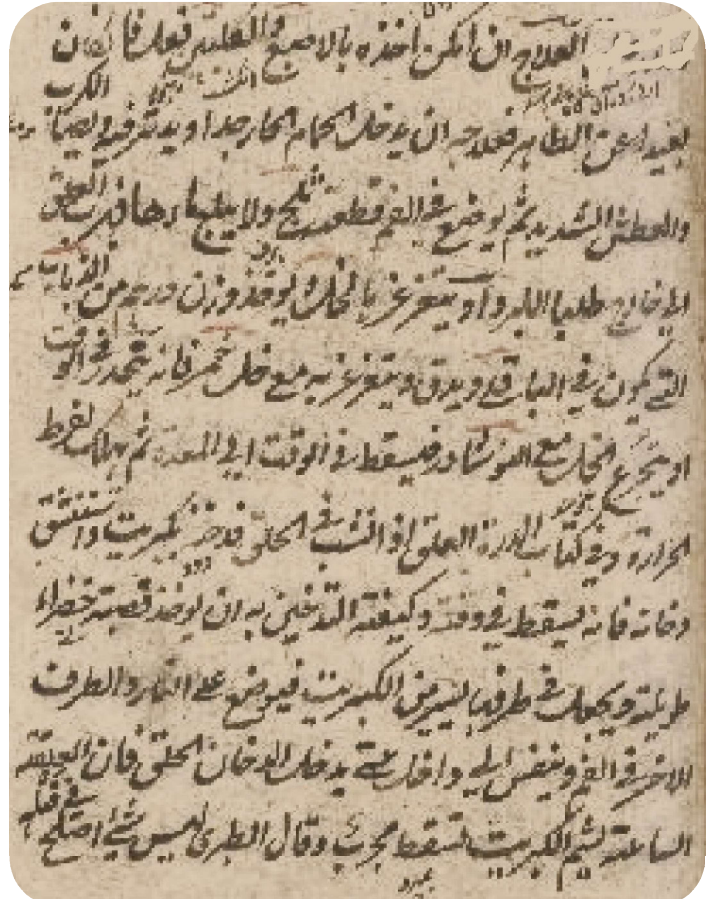 العلاج ان امكن اخذه بالاصبع والكلبتين فعل فان كان
بعيدا عن الظاهر فعلاجه ان يدخل الحمام الحار جدا ويدثر فيه
والعطش الشديد ثم يوضع في الفم قطعة ثلج ولا يبلع ماءها فان العلق
الى خارج طلبا للبرد او يتغرغر بالخل او يؤخذ وزن درهم من الذباب
التي يكون في الباقلى ويدق ويتغرغر به مع خل خمر فانه ينحدر في الوقت
او يتجرع الخل مع النوشادر فيسقط في الوقت الى المعدة ثم يهلك لفرط
الحرارة وفي كتاب الدرة العلق اذا نشب في الحلق فدخن بكبريت واستنشق
دخانه فانه يسقط في وقته وكيفية التدخين به ان يؤخذ قصبة خضراء
طويلة ويجعل في طرفها يسير من الكبريت فيوضع على النار والطرف
الاخر في الفم ويتنفس الى داخل حتى يدخل الدخان الحلق فان العلقة
الساعة لشم الكبريت تسقط مجرب وقال الطبرى ليس شئ اصلح في قتله